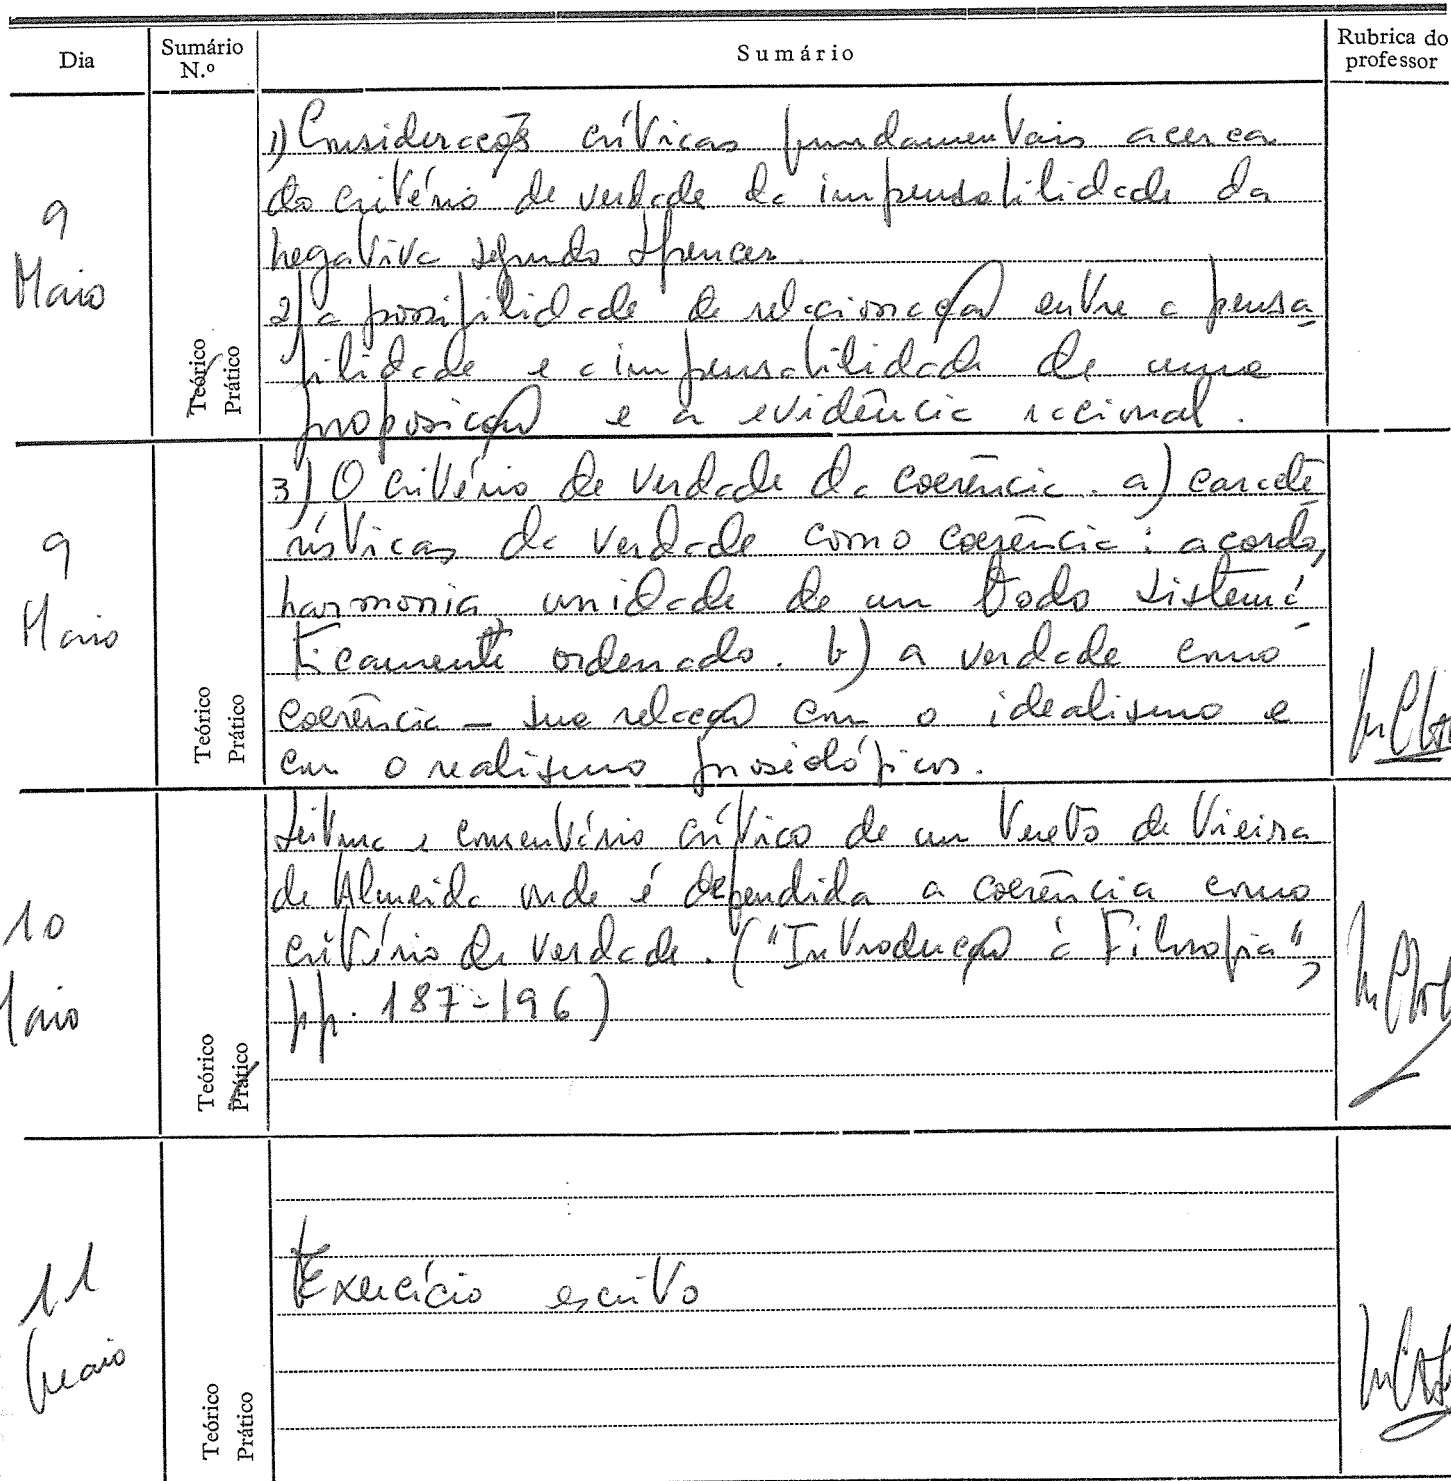 Dia
Sumário N.º
Sumário
Rubrica do professor
9
Maio
Teórico
Prático
1) Considerações críticas fundamentais acerca
do critério de verdade da impensabilidade da
negativa segundo Spencer.
2) a possibilidade de relacionação entre a pensa
bilidade e a impensabilidade de uma
proposição e a evidência racional.
9
Maio
Teórico
Prático
3) O critério de verdade da coerência. a) caracte
rísticas da verdade como coerência: acordo,
harmonia, unidade de um todo sistemá
ticamente ordenado. b) a verdade como
coerência – sua relação com o idealismo e
com o realismo gnoseológicos.
10
Maio
Teórico
Prático
Leitura e comentário crítico de um texto de Vieira
de Almeida onde é defendida a coerência como
critério de verdade. ("Introdução à Filosofia",
pp. 187-196)
11
Maio
Teórico
Prático
Exercício escrito